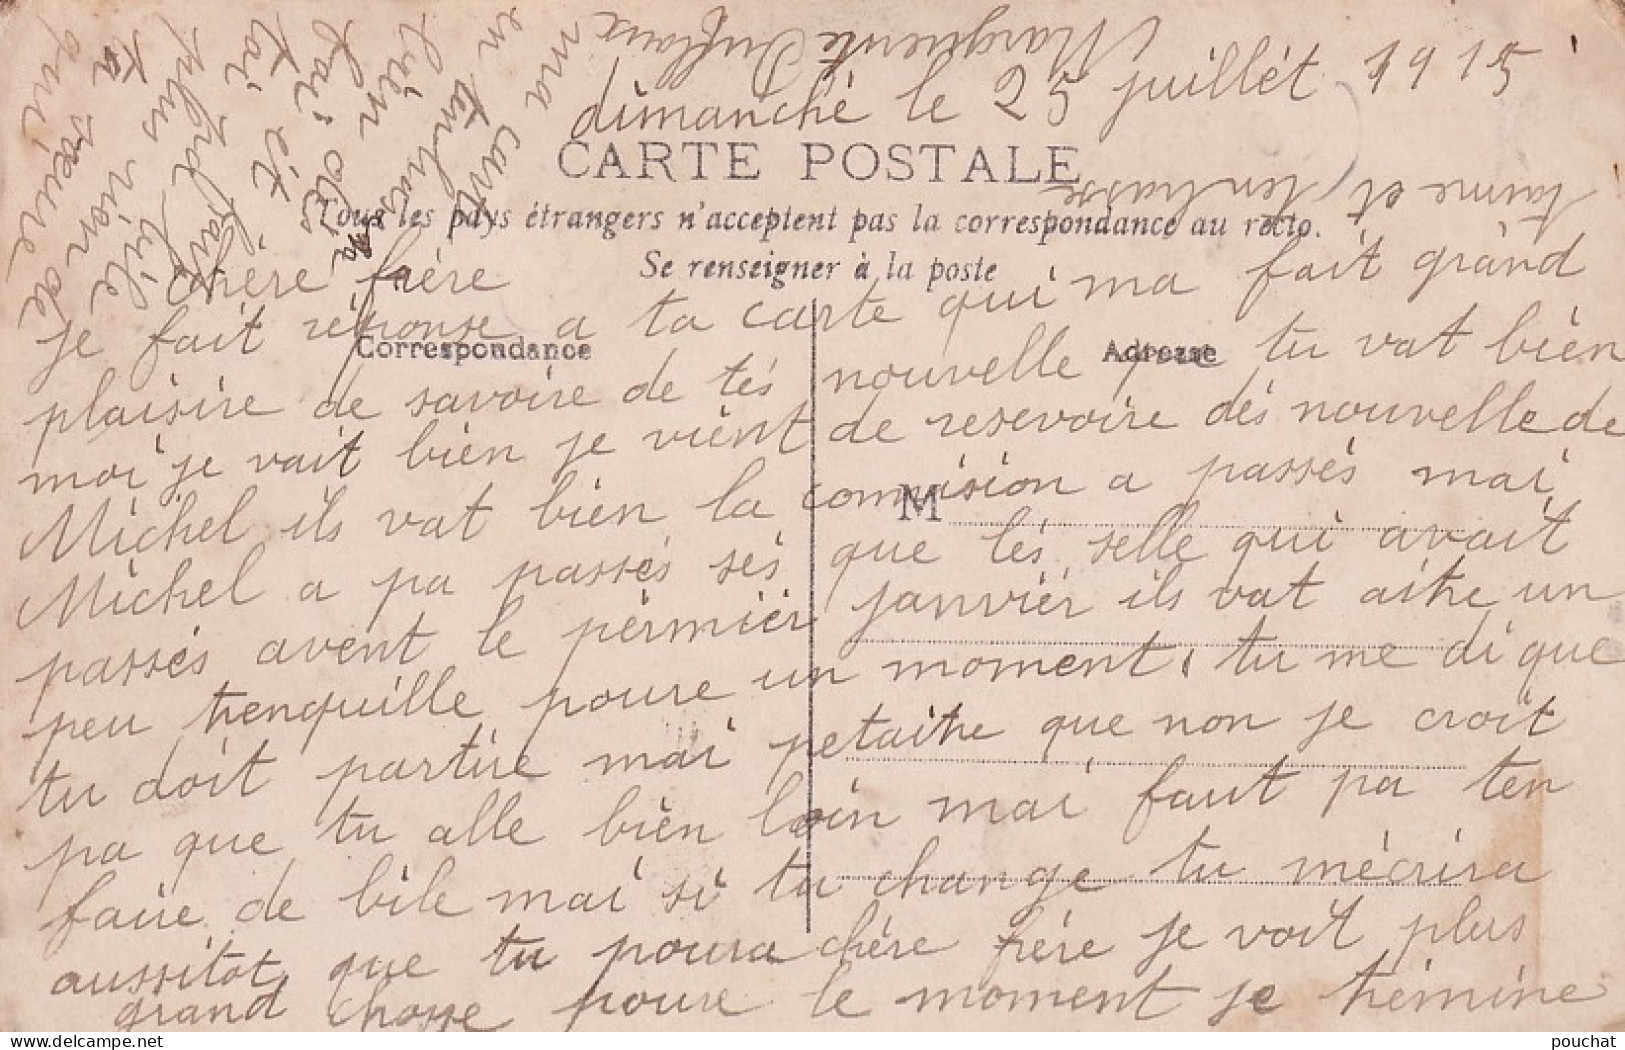 dimanché le 25 juillét 1915
CARTE POSTALE
Tous les pays étrangers n'acceptent pas la correspondance au recto.
Se renseigner à la poste
Correspondance
Adresse
M
chère frére
je fait réponse a ta carte qui ma fait grànd
plaisire de savoire de tés nouvelle que tu vat bièn
moi je vait bièn je viènt de resevoire dés nouvelle de
Michel ils vat bièn la commision a passés mai
Michel a pa passés sés que lés selle qui avait
passés avent le pérmiér janviér ils vat aitre un
peu trenquille poure un moment, tu me di que
tu doit partire mai petaitre que non je croit
pa que tu alle bièn loin mai faut pa ten
faire de bile mai si tu change tu mécrira
aussitot que tu poura chére frére je voit plus
grand chosse poure le moment je términe
ma carte
en tenbrassent
bièn
toi
plus
ta
qui
Marguerite